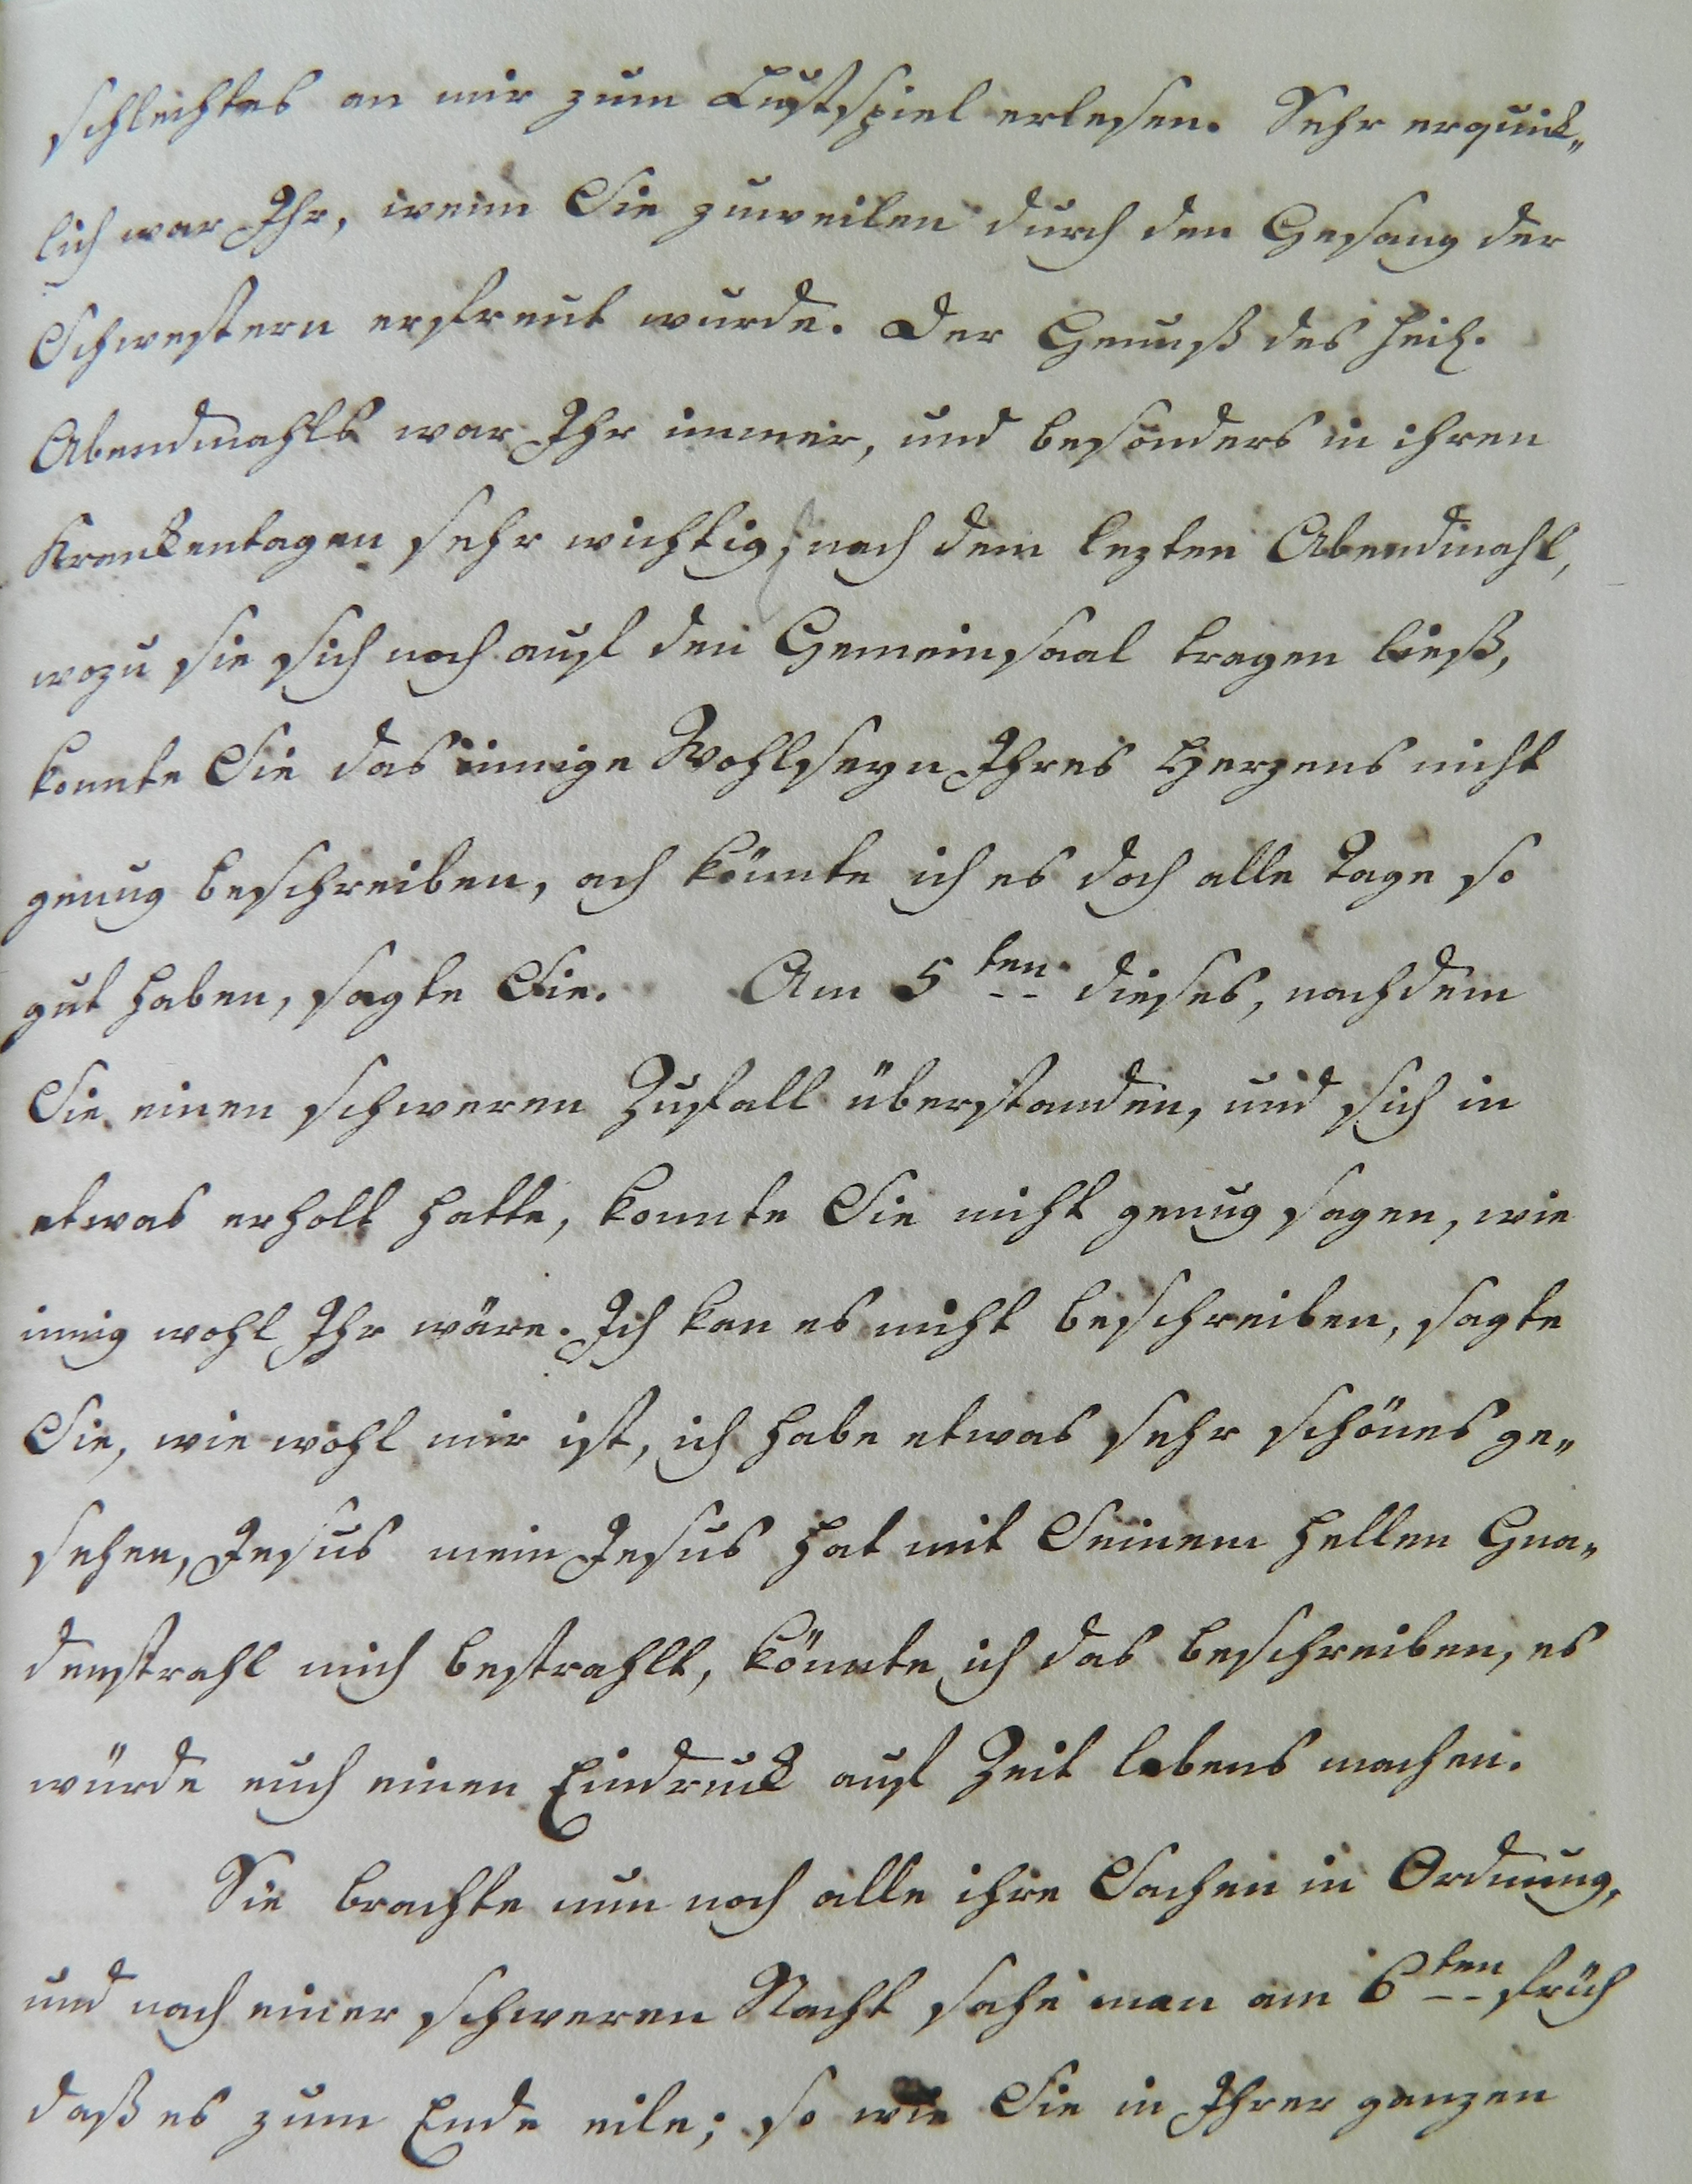 schlechtes an mir zum Lustspiel erlesen. Sehr erquick„
lich war Ihr, wenn Sie zuweilen durch den Gesang der
Schwestern erfreut wurde. Der Genuß des heil.
Abendmahls war Ihr immer, und besonders in ihren
Krankentagen sehr wichtig, nach dem lezten Abendmahl,
wozu sie sich noch auf den Gemeinsaal tragen ließ,
konnte Sie das innige Wohlseyn Ihres Herzens nicht
genug beschreiben, ach könnte ich es doch alle Tage so
gut haben, sagte Sie. Am 5ten dieses, nachdem
Sie einen schweren Zufall überstanden, und sich in
etwas erholt hatte, konnte Sie nicht genug sagen, wie
innig wohl Ihr wäre. Ich kan es nicht beschreiben, sagte
Sie, wie wohl mir ist, ich habe etwas sehr schönes ge„
sehen, Jesus mein Jesus hat mit Seinem hellen Gna„
denstrahl mich bestrahlt, könnte ich das beschreiben, es
würde euch einen Eindruck auf Zeit lebens machen.
Sie brachte nun noch alle ihre Sachen in Ordnung,
und nach einer schweren Nacht sahe man am 6ten früh
daß es zum Ende eile; so wie Sie in Ihrer ganzen